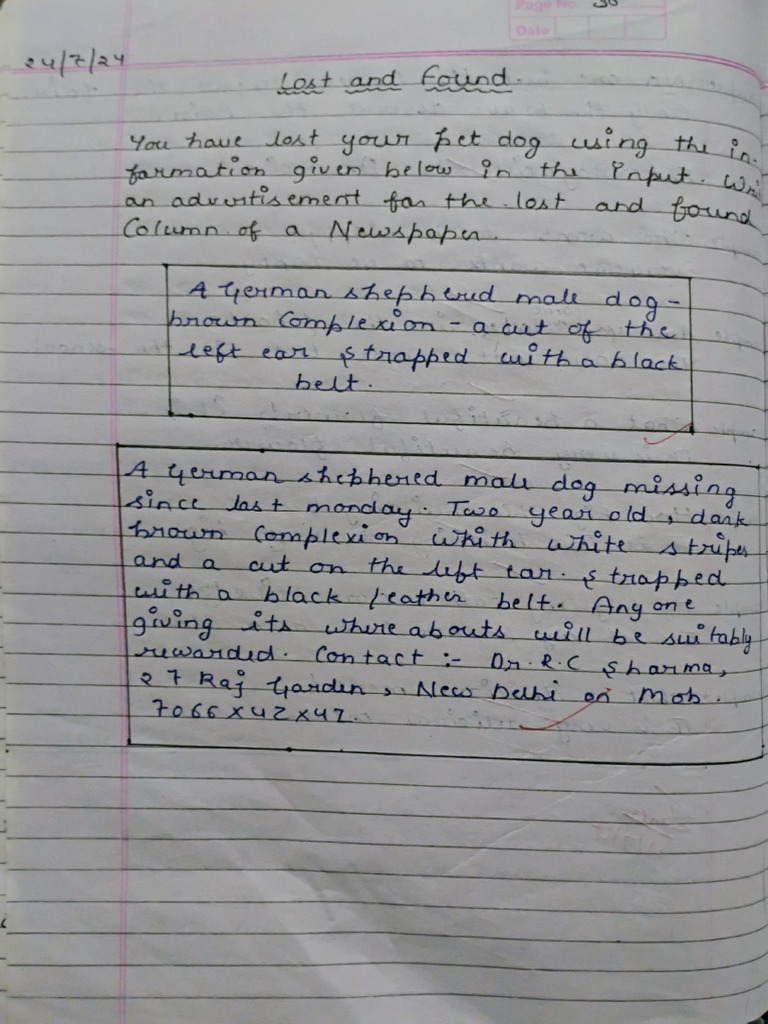 Page No. 30
Date
24/7/24
Lost and Found.
You have lost your pet dog using the in-
formation given below in the Input. Wri
an advertisement for the lost and found
Column of a Newspaper.
A German shephered male dog -
brown Complexion - a cut of the
left ear strapped with a black
belt.
A German shephered male dog missing
since last monday. Two year old, dark
brown Complexion whith white stripes
and a cut on the left ear. strapped
with a black leather belt. Any one
giving its where abouts will be suitably
rewarded. Contact :- Dr. R.C Sharma,
27 Raj Garden, New Delhi on Mob.
7066x42x42.